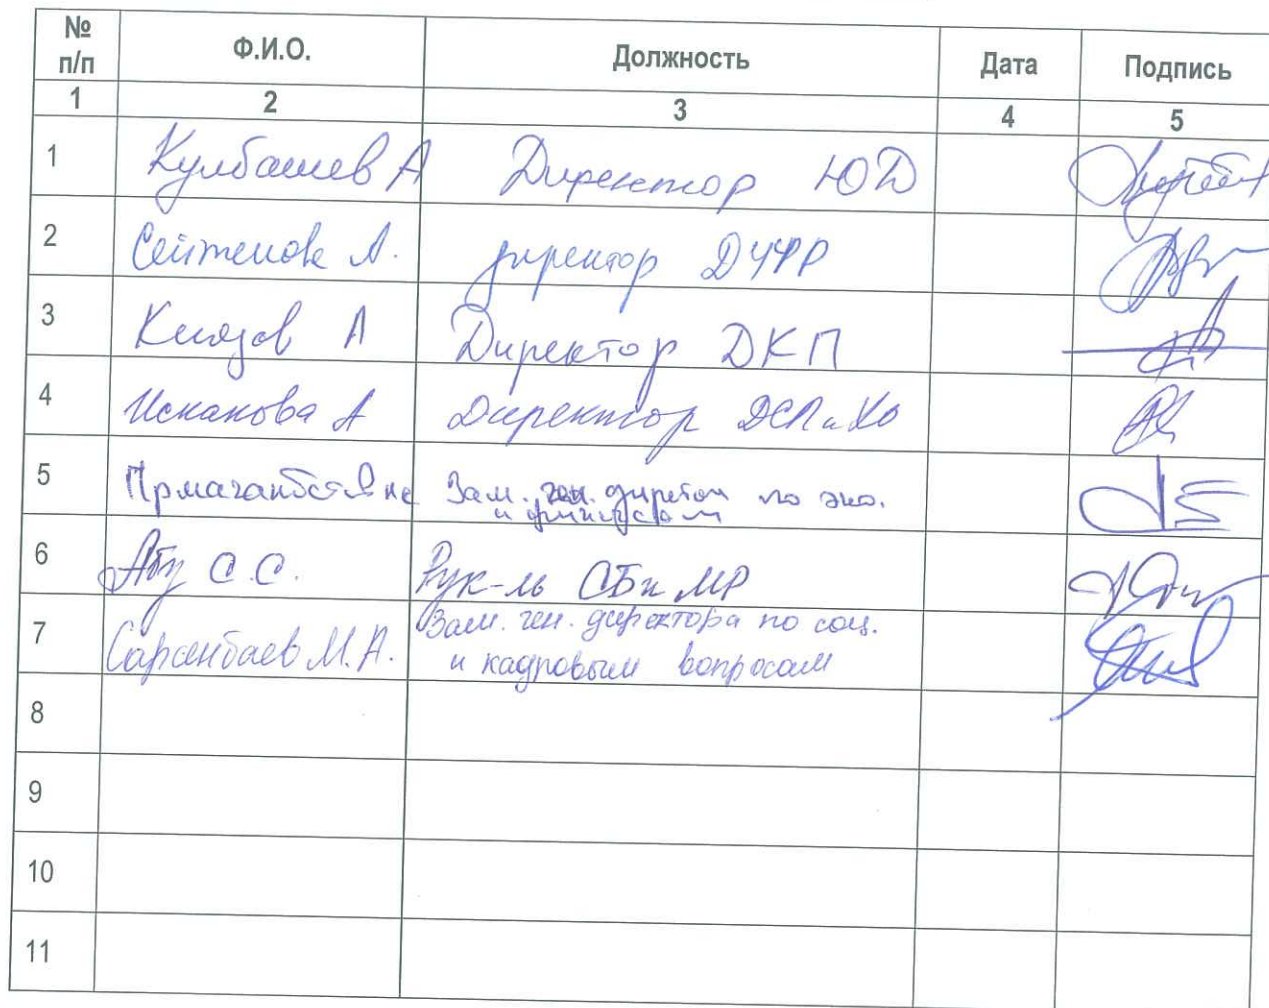 № п/п Ф.И.О. Должность Дата Подпись
1 2 3 4 5
1 Кулбашев А Директор ЮД
2 Сейтенова А. директор ДУЧР
3 Князов А Директор ДКП
4 Исканова А Директор
5 Зам. ген. по эко.
и финансам
6 С.С. Рук-ль СБиМР
7 Сарсенбаев М.А. Зам. ген. директора по соц.
и кадровым вопросам
8
9
10
11